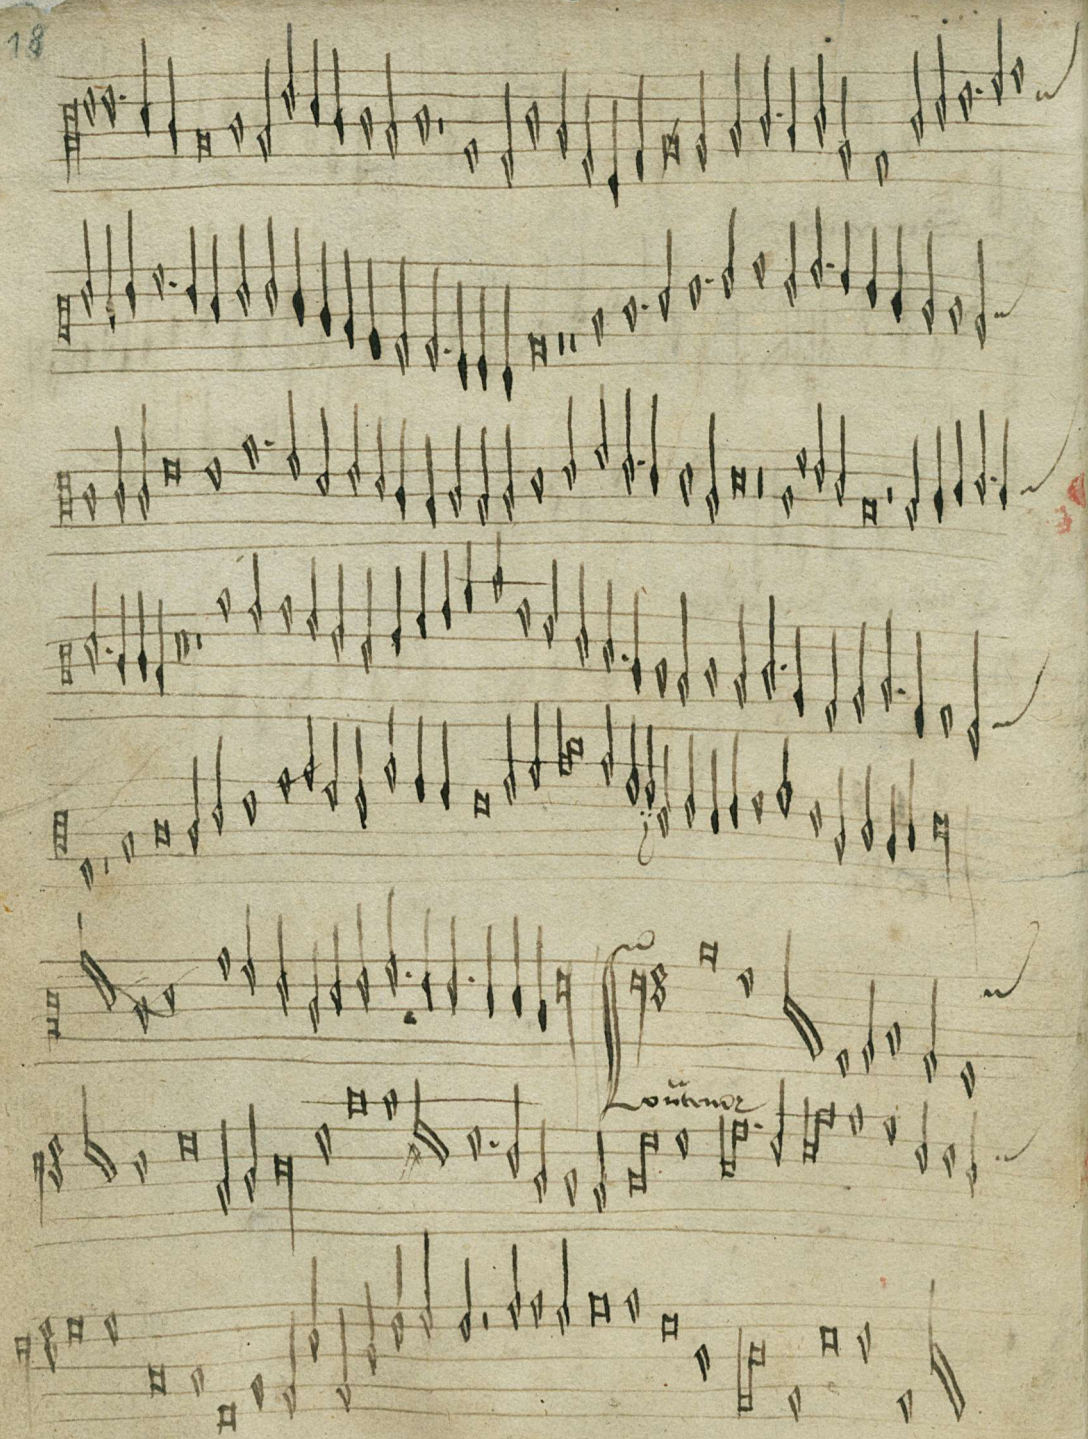 18
Contratenor